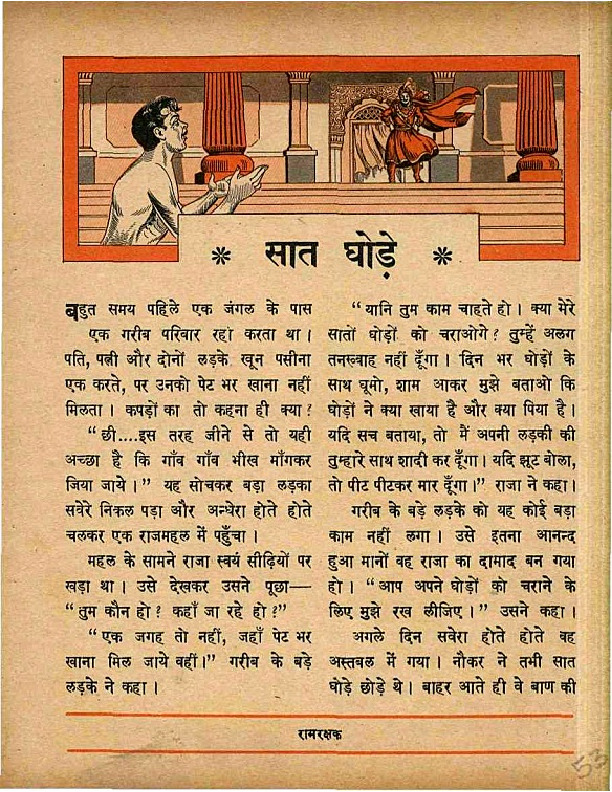 * सात घोड़े *
बहुत समय पहिले एक जंगल के पास
एक गरीब परिवार रहा करता था।
पति, पत्नी और दोनों लड़के खून पसीना
एक करते, पर उनको पेट भर खाना नहीं
मिलता। कपड़ों का तो कहना ही क्या?
“छी....इस तरह जीने से तो यही
अच्छा है कि गाँव गाँव भीख माँगकर
जिया जाये।” यह सोचकर बड़ा लड़का
सवेरे निकल पड़ा और अन्धेरा होते होते
चलकर एक राजमहल में पहुँचा।
महल के सामने राजा स्वयं सीढ़ियों पर
खड़ा था। उसे देखकर उसने पूछा—
“तुम कौन हो? कहाँ जा रहे हो?”
“एक जगह तो नहीं, जहाँ पेट भर
खाना मिल जाये वहीं।” गरीब के बड़े
लड़के ने कहा।
“यानि तुम काम चाहते हो। क्या मेरे
सातों घोड़ों को चराओगे? तुम्हें अलग
तनख्वाह नहीं दूँगा। दिन भर घोड़ों के
साथ घूमो, शाम आकर मुझे बताओ कि
घोड़ों ने क्या खाया है और क्या पिया है।
यदि सच बताया, तो मैं अपनी लड़की की
तुम्हारे साथ शादी कर दूँगा। यदि झूट बोला,
तो पीट पीटकर मार दूँगा।” राजा ने कहा।
गरीब के बड़े लड़के को यह कोई बड़ा
काम नहीं लगा। उसे इतना आनन्द
हुआ मानों वह राजा का दामाद बन गया
हो। “आप अपने घोड़ों को चराने के
लिए मुझे रख लीजिए।” उसने कहा।
अगले दिन सवेरा होते होते वह
अस्तबल में गया। नौकर ने तभी सात
घोड़े छोड़े थे। बाहर आते ही वे बाण की
रामरक्षक
53